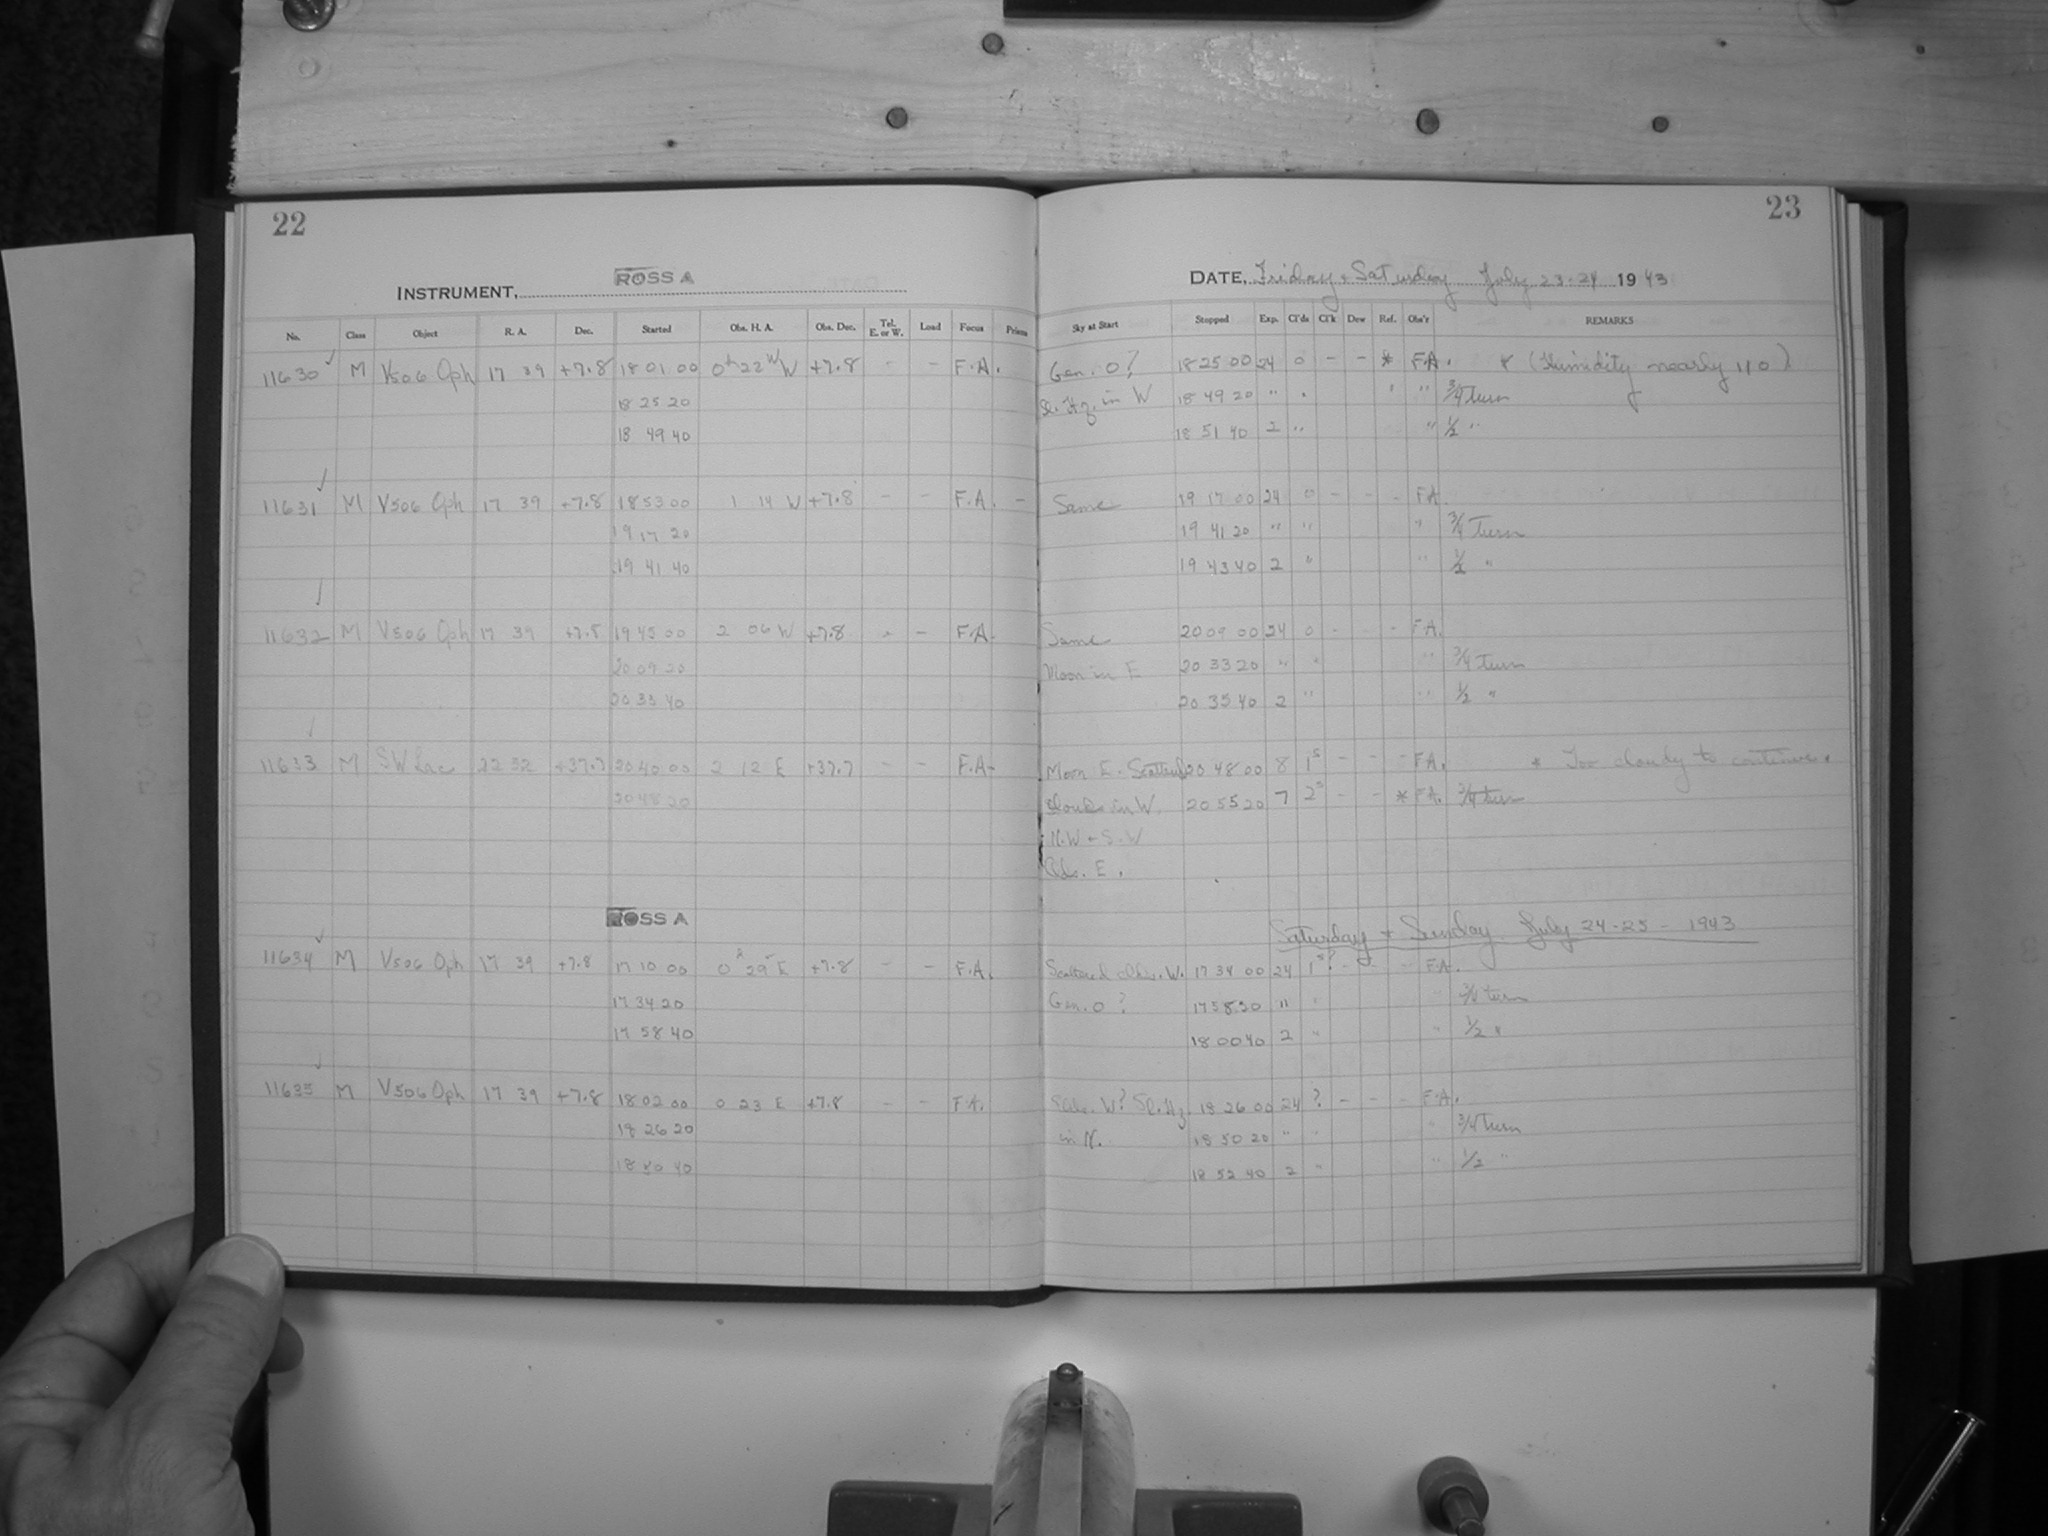 22
INSTRUMENT, ROSS A
No. Class Object R. A. Dec. Started Obs. H. A. Obs. Dec. Tel. E. or W. Load Focus Prism
11630 M V506 Oph 17 39 +7.8 18 01 00 0 22 W +7.8 - - F.A.
18 25 20
18 49 40
11631 M V506 Oph 17 39 +7.8 18 53 00 1 14 W +7.8 - - F.A. -
19 17 20
19 41 40
11632 M V506 Oph 17 39 +7.8 19 45 00 2 06 W +7.8 - - F.A.
20 09 20
20 33 40
11633 M SW Lac 22 52 +37.7 20 40 00 2 12 E +37.7 - - F.A-
20 48 20
ROSS A
11634 M V506 Oph 17 39 +7.8 17 10 00 0 29 E +7.8 - - F.A.
17 34 20
17 58 40
11635 M V506 Oph 17 39 +7.8 18 02 00 0 23 E +7.8 - - F.A.
18 26 20
18 50 40
23
DATE, Friday & Saturday July 23-24 1943
Sky at Start Stopped Exp. Cl'ds Cl'k Dew Ref. Obs'r REMARKS
Gen. 0? 18 25 00 24 0 - - * F.A. * (Humidity nearly 110)
Sl. Hz. in W 18 49 20 " " " " 3/4 turn
18 51 40 2 " " 1/2 "
Same 19 17 00 24 0 - - - FA.
19 41 20 " " " 3/4 Turn
19 43 40 2 " " 1/2 "
Same 20 09 00 24 0 - - F.A.
Moon in E 20 33 20 " " " 3/4 turn
20 35 40 2 " " 1/2 "
Moon E. Scattered 20 48 00 8 1s - - - F.A. * Too cloudy to continue.
clouds in W. 20 55 20 7 2s - - * F.A. 3/4 turn
N.W + S.W
Obs. E.
Saturday & Sunday July 24-25 - 1943
Scattered clds. W. 17 34 00 24 1s? - - - F.A.
Gen. 0? 17 58 20 " " " 3/4 turn
18 00 40 2 " " 1/2 "
W? Sl. Hz 18 26 00 24 ? - - - F.A.
in N. 18 50 20 " " " 3/4 turn
18 52 40 2 " " 1/2 "